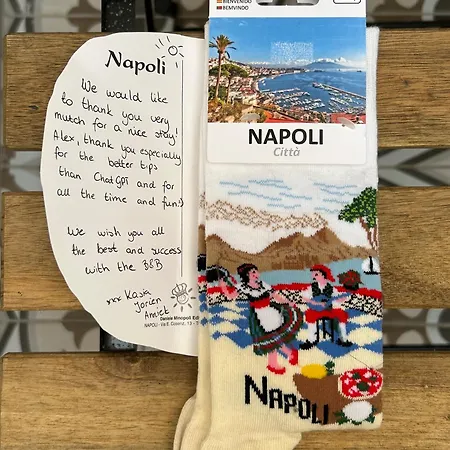 BIENVENIDO
BEMVINDO
Napoli
We would like
to thank you very
mutch for a nice stay!
Alex, thank you especially
for the better tips
than ChatGPT and for
all the time and fun:)
We wish you all
the best and success
with the B&B
xxx Kasia
Jorien
Daniele Minopoli Edi
NAPOLI - Via E. Cosenz, 13 -
NAPOLI
Città
NAPOLI